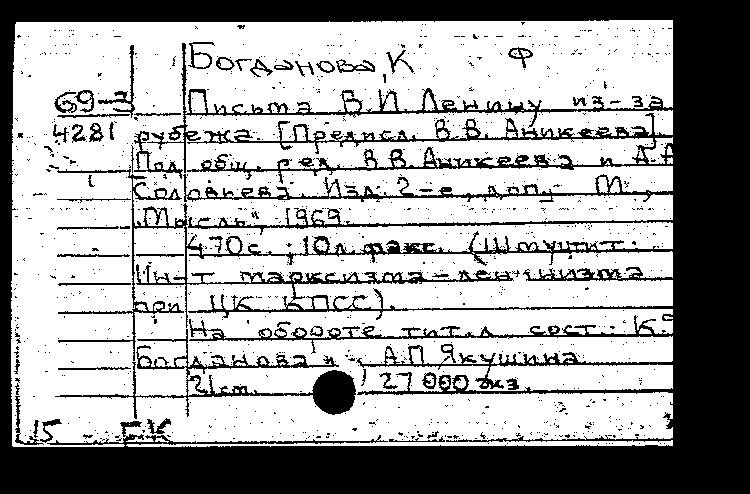 Богданова, К Ф
69-3 Письма В.И. Ленину из-за
4281 рубежа. [Предисл. В.В. Аникеева]
Под общ. ред. В.В. Аникеева и А.А
Соловьева. Изд. 2-е, доп. М.,
"Мысль", 1969.
470с.; 10л. факс. (Шмуцтит:
Ин-т марксизма-ленинизма
при ЦК КПСС).
На обороте тит. л сост.: К.
Богданова и А.П Якушина
21см. 27 000 экз.
15 ГК